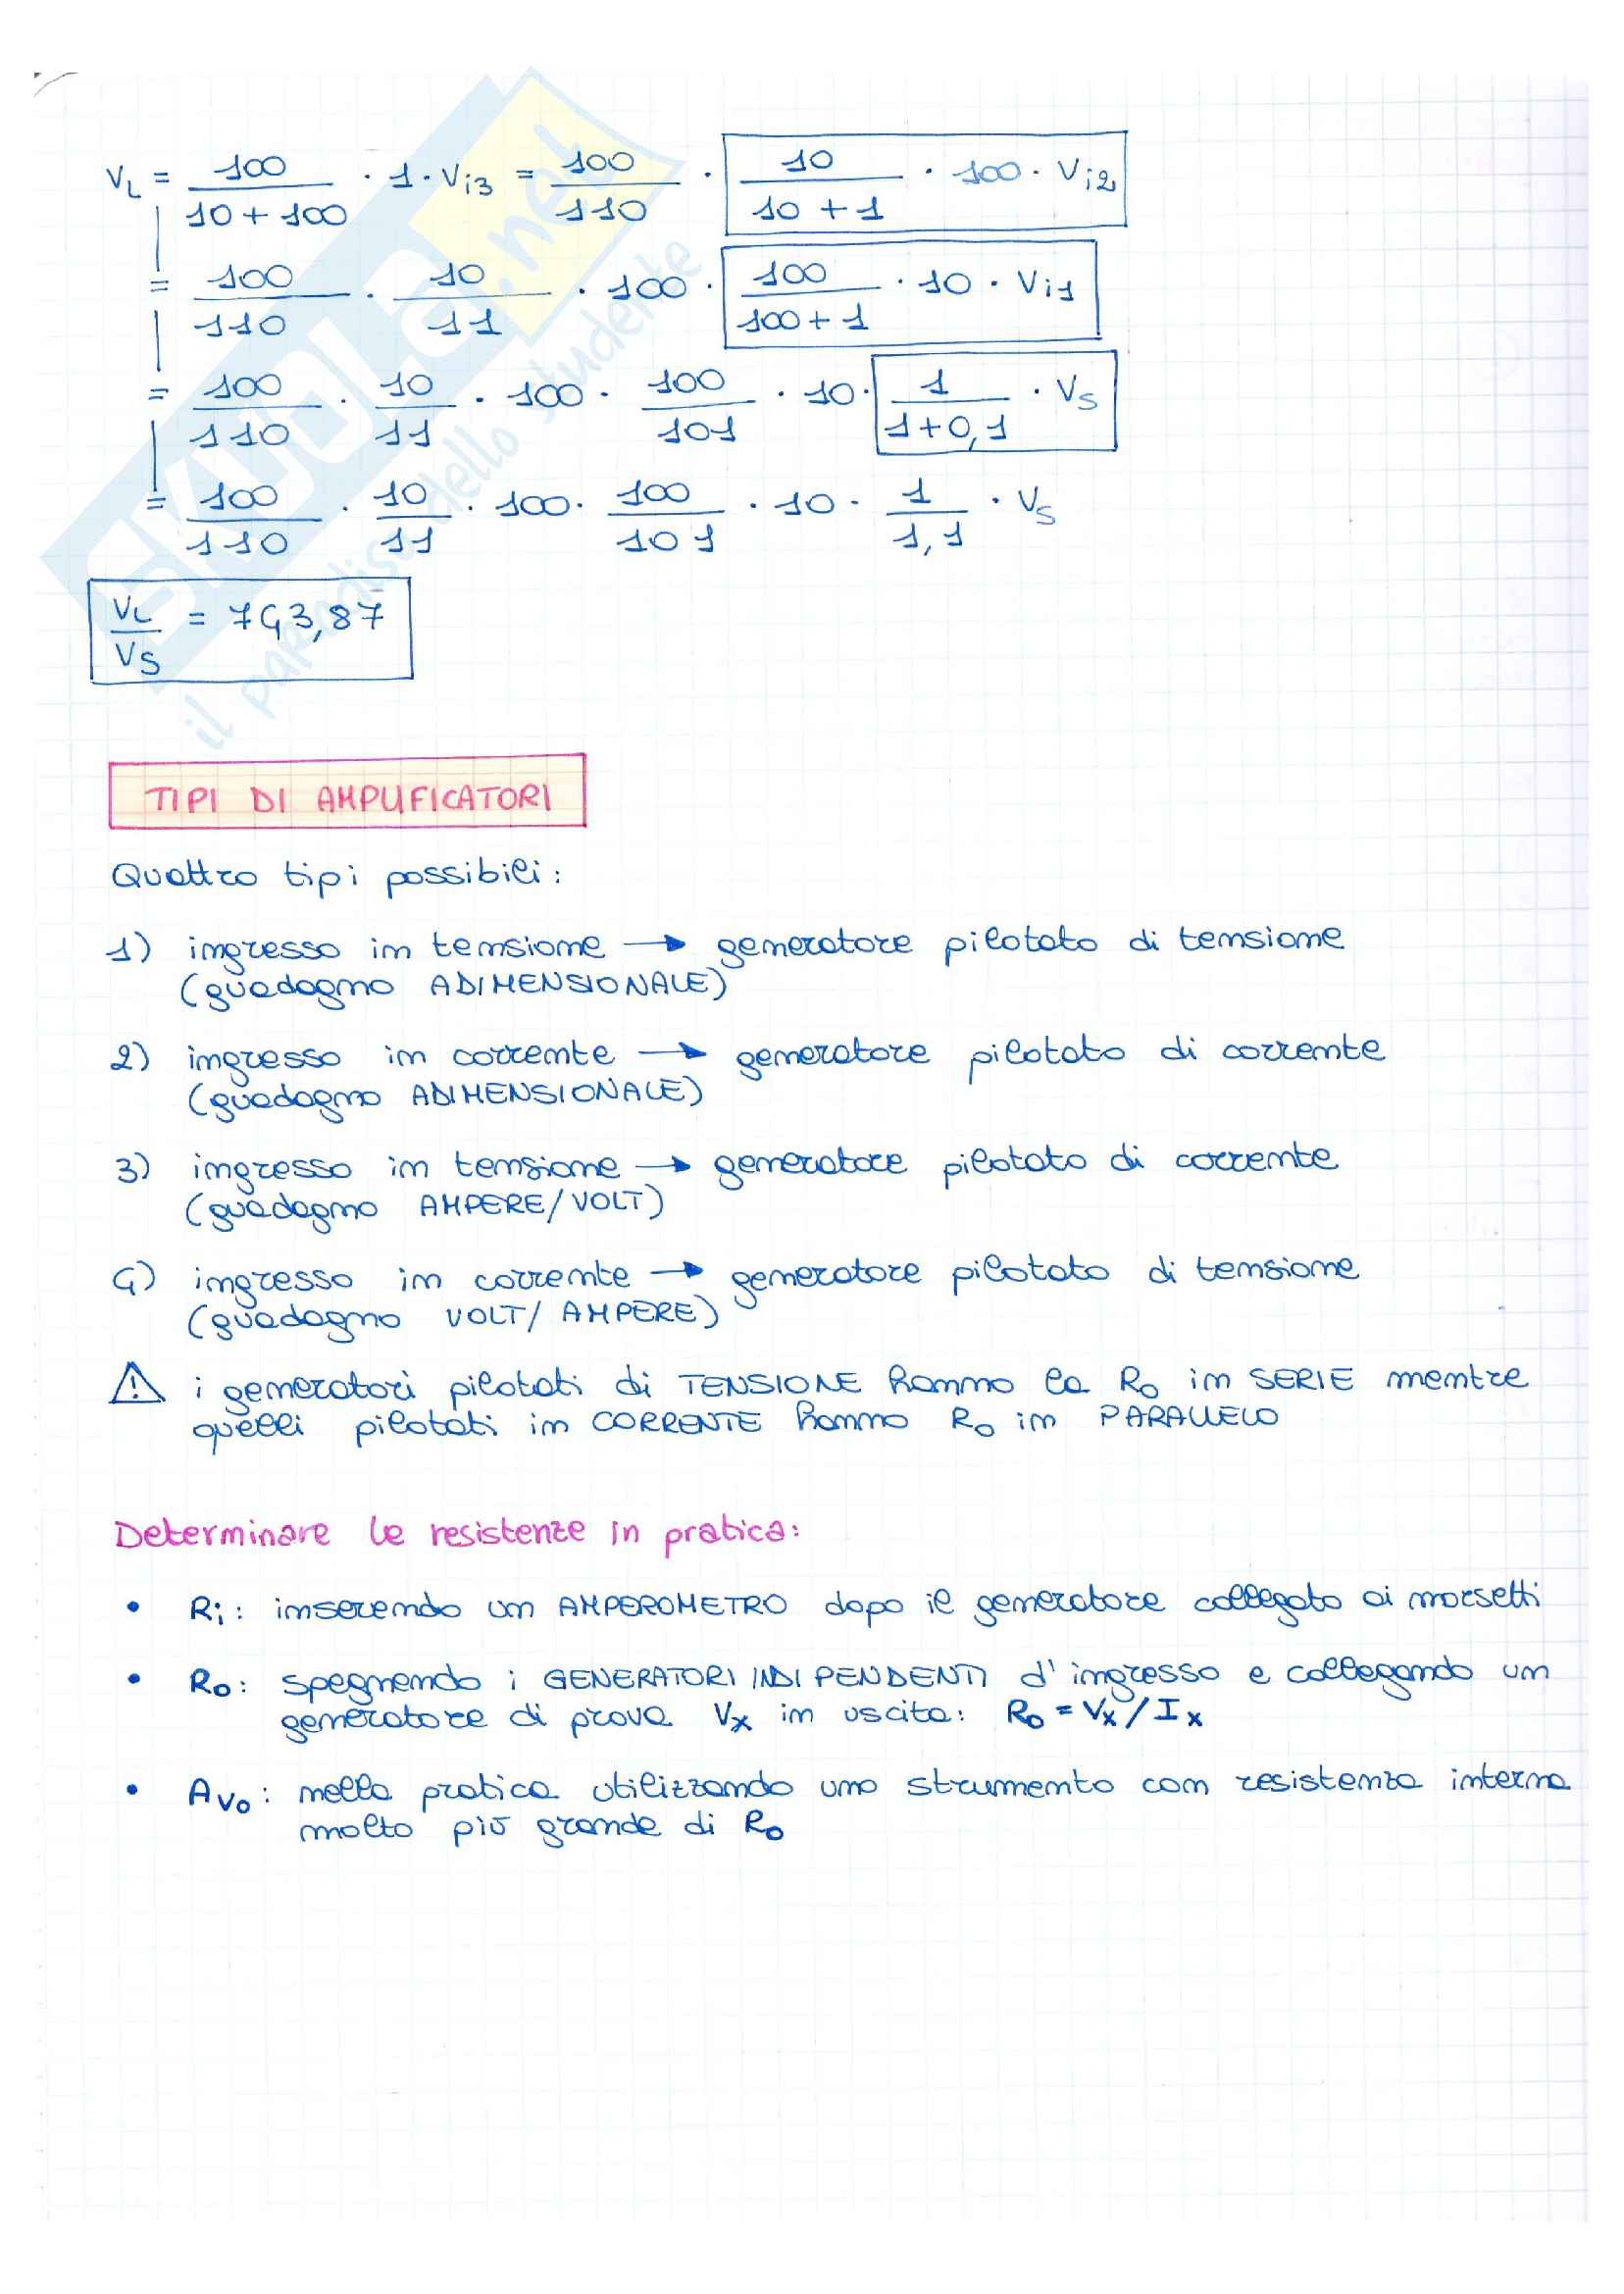 V_L = 100/(10+100) · 1 · V_i3 = 100/110 · 10/(10+1) · 100 · V_i2
= 100/110 · 10/11 · 100 · 100/(100+1) · 10 · V_i1
= 100/110 · 10/11 · 100 · 100/101 · 10 · 1/(1+0,1) · V_S
= 100/110 · 10/11 · 100 · 100/101 · 10 · 1/1,1 · V_S
V_L/V_S = 743,87
TIPI DI AMPLIFICATORI
Quattro tipi possibili:
1) ingresso in tensione → generatore pilotato di tensione
(guadagno ADIMENSIONALE)
2) ingresso in corrente → generatore pilotato di corrente
(guadagno ADIMENSIONALE)
3) ingresso in tensione → generatore pilotato di corrente
(guadagno AMPERE/VOLT)
4) ingresso in corrente → generatore pilotato di tensione
(guadagno VOLT/AMPERE)
⚠ i generatori pilotati di TENSIONE hanno la R_o in SERIE mentre
quelli pilotati in CORRENTE hanno R_o in PARALLELO
Determinare le resistenze in pratica:
• R_i: inserendo un AMPEROMETRO dopo il generatore collegato ai morsetti
• R_o: spegnendo i GENERATORI INDIPENDENTI d'ingresso e collegando un
generatore di prova V_x in uscita: R_o = V_x/I_x
• A_vo: nella pratica utilizzando uno strumento con resistenza interna
molto più grande di R_o
SKUOLA.net
il paradiso dello studente